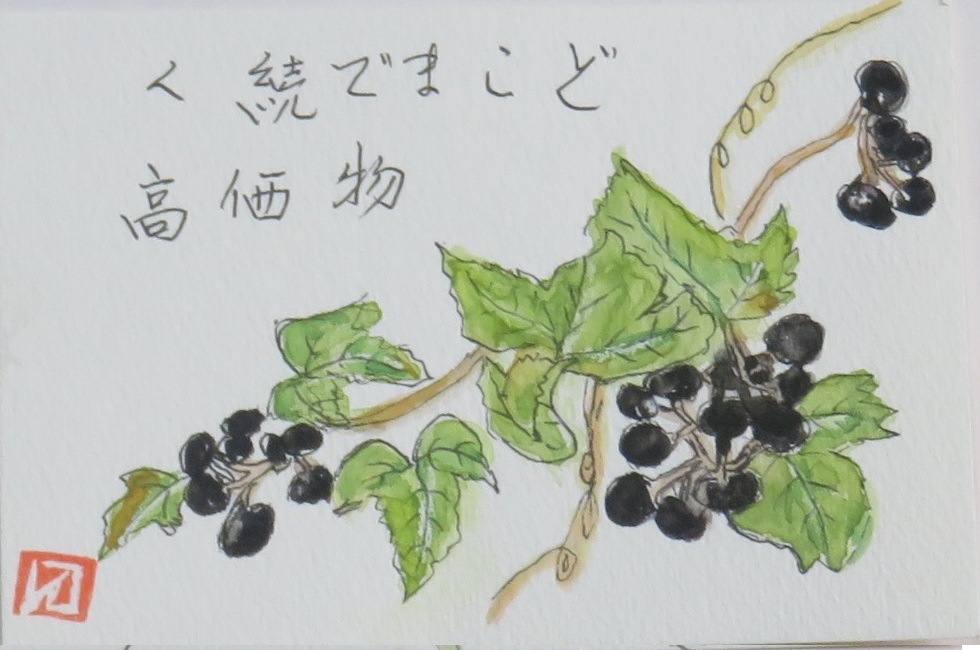 どこまで続く
物価高